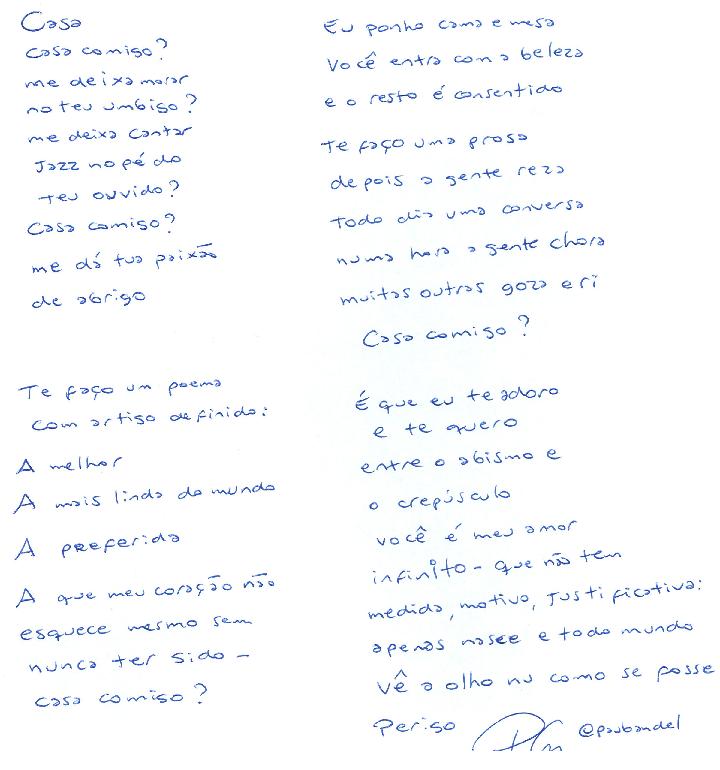 Casa
Casa comigo?
me deixa morar
no teu umbigo?
me deixa cantar
Jazz no pé do
teu ouvido?
Casa comigo?
me dá tua paixão
de abrigo
Te faço um poema
com artigo definido:
A melhor
A mais linda do mundo
A preferida
A que meu coração não
esquece mesmo sem
nunca ter sido -
casa comigo?
Eu ponho cama e mesa
Você entra com a beleza
e o resto é consentido
Te faço uma prosa
depois a gente reza
todo dia uma conversa
numa hora a gente chora
muitas outras goza e ri
Casa comigo?
É que eu te adoro
e te quero
entre o abismo e
o crepúsculo
você é meu amor
infinito - que não tem
medida, motivo, justificativa:
apenas nasce e todo mundo
vê a olho nu como se fosse
Perigo
@paubandel